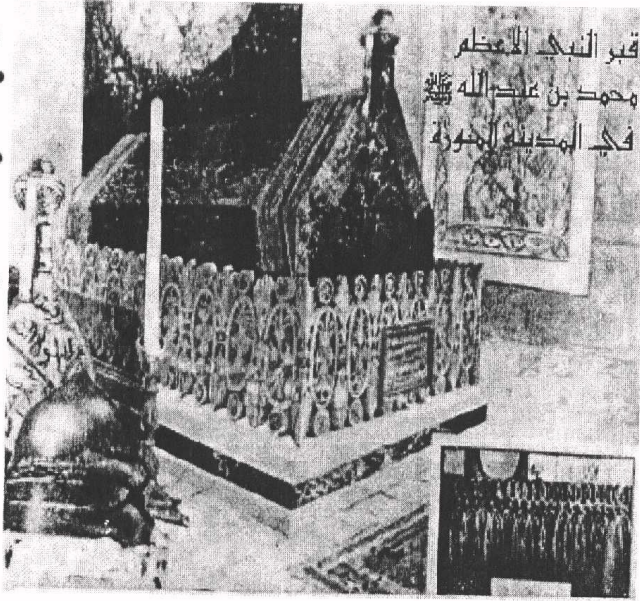 قبر النبي الاعظم
محمد بن عبدالله ﷺ
في المدينة المنورة